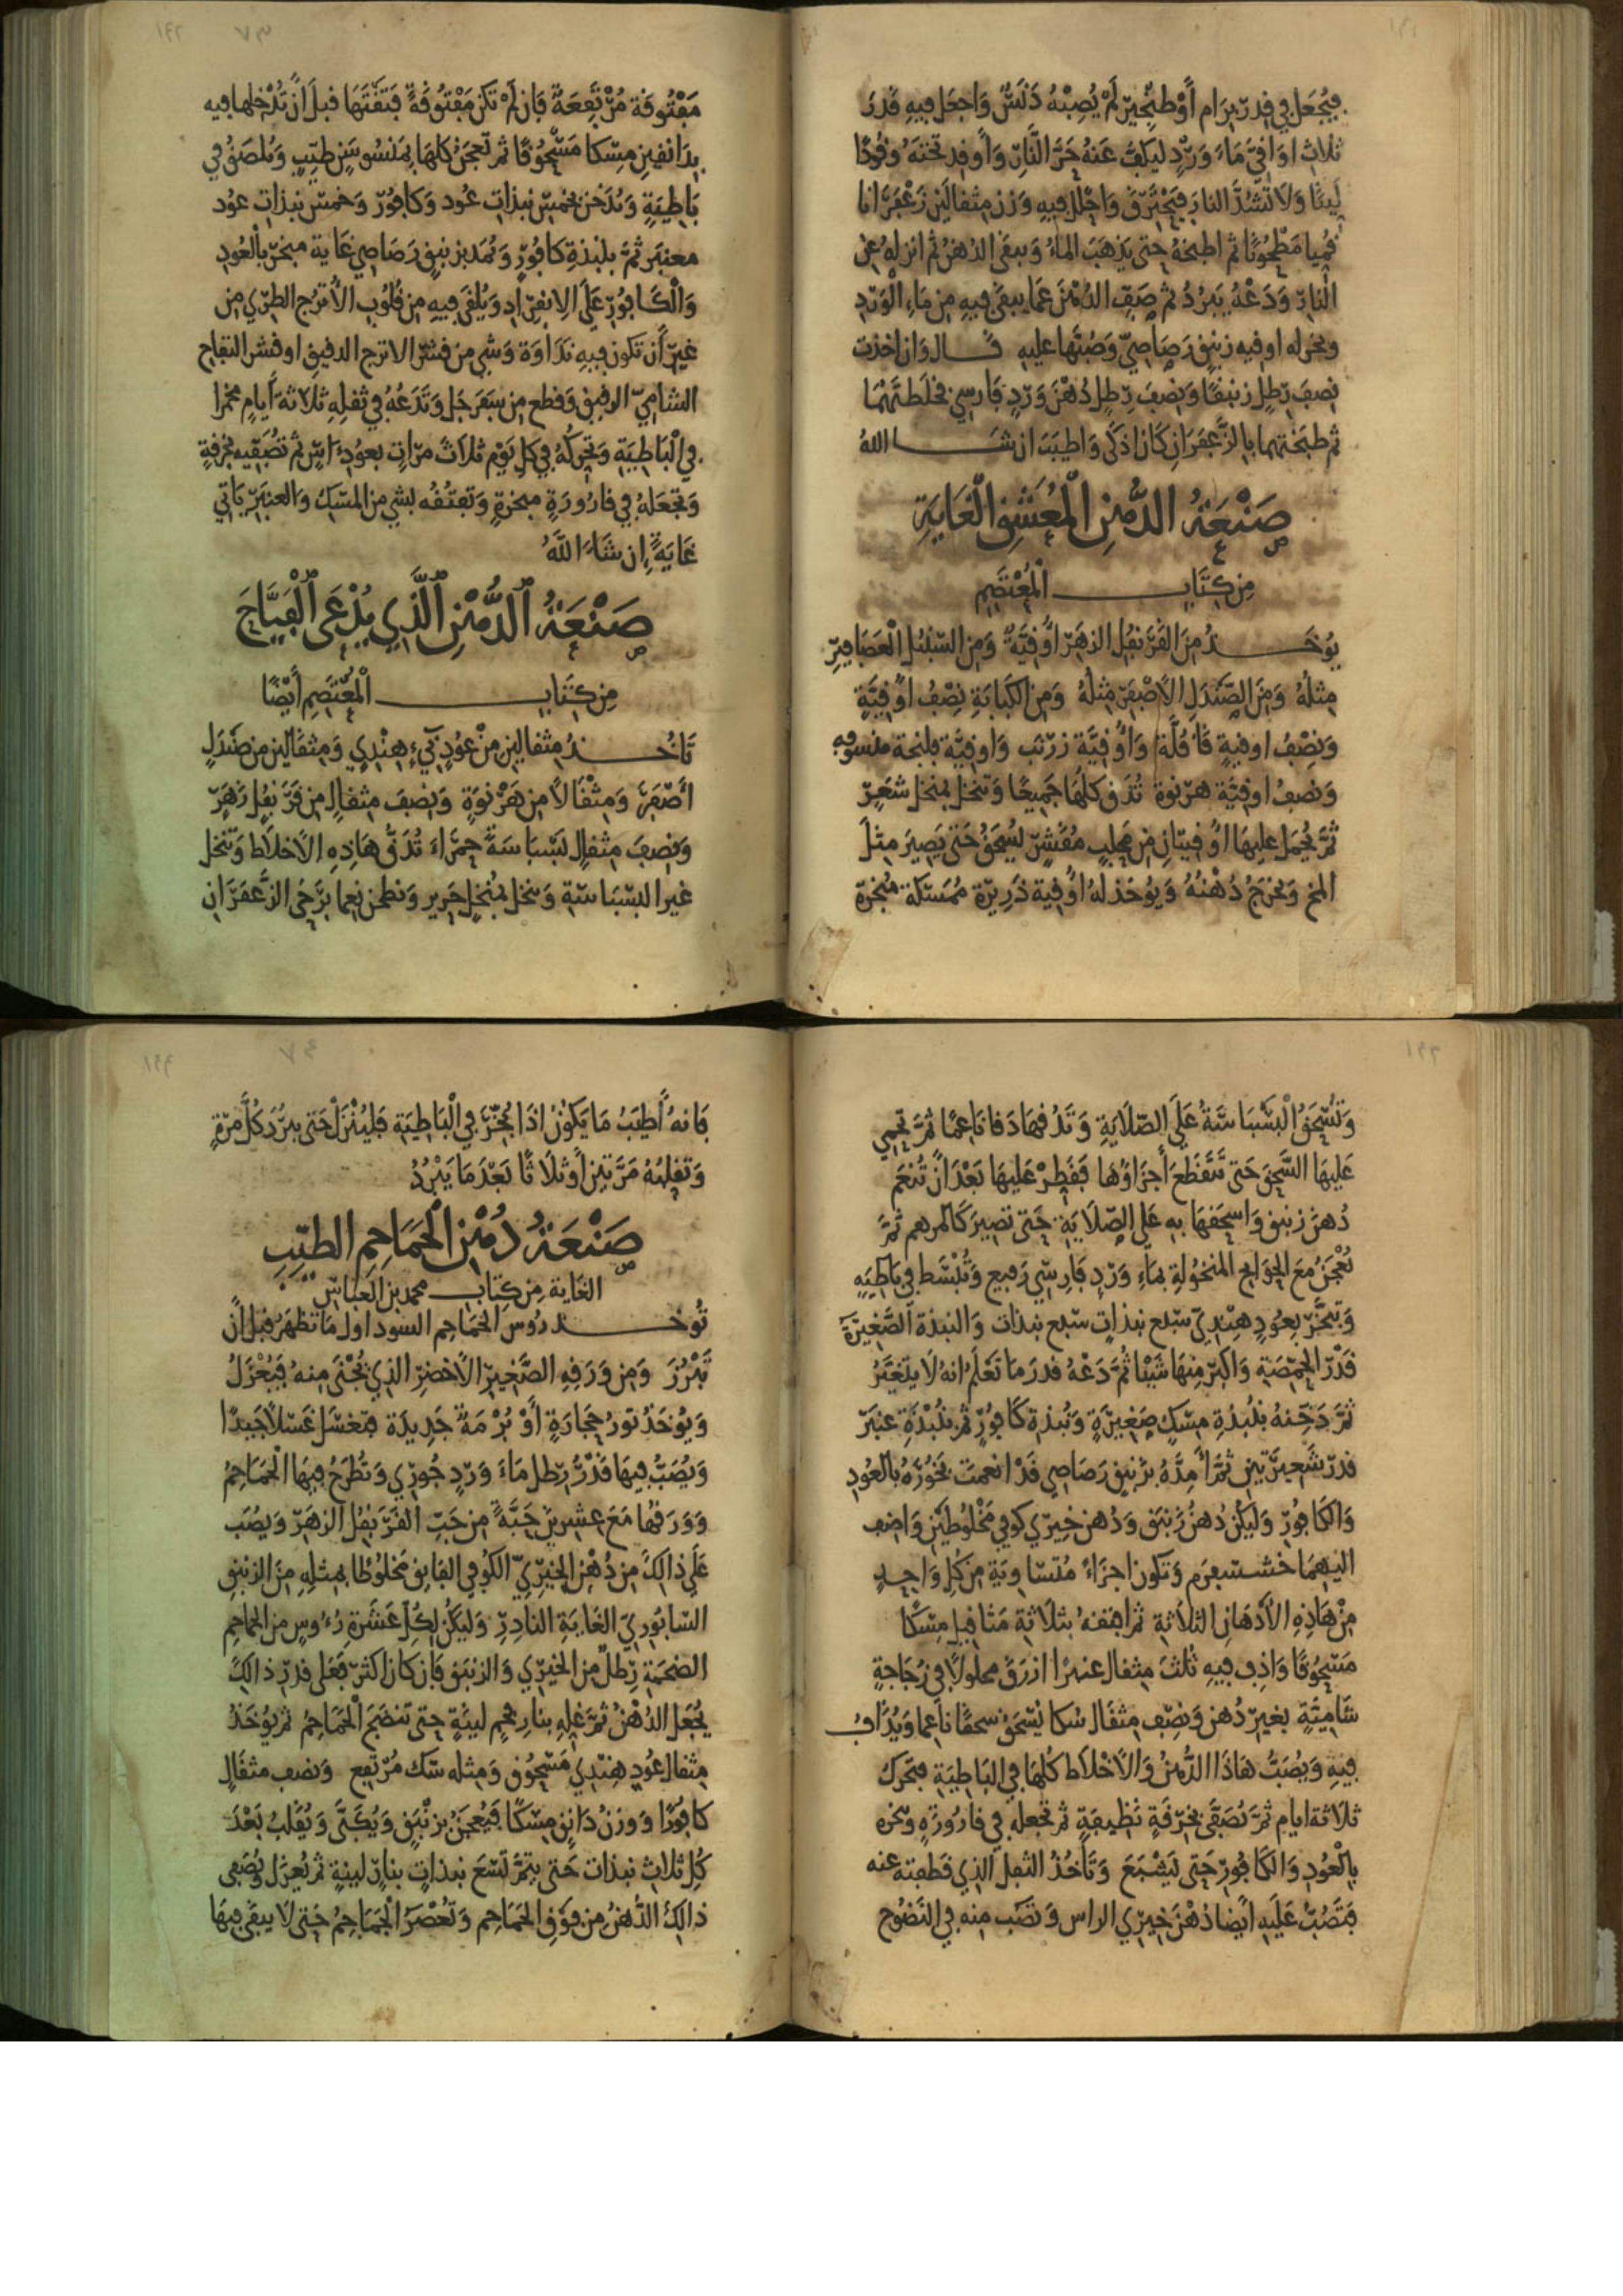 فيُجعَل في قِدرِ بِرَام أوْ طِنجِير لَمْ يُصِبْهُ دَنَسٌ وَاجعَل فيهِ قَدرَ
ثلاث اوَاقيَّ مَاءَ وَرْدٍ ليَكفَّ عَنهُ حَرَّ النَّارِ وَأوقد تحتَهُ وقُودًا
لَينًا وَلَا تَشُدَّ النارَ فيَحْتَرِقَ وَاحْلل فيهِ وَزن مثقالَين زَعْفَرَانا
قُميا مَطحُونًا ثم اطبخهُ حتى يَذهَبَ الماءُ وَيبقَى الدُهنُ ثم انزلهُ عن
النارِ وَدَعْهُ يَبَردُ ثم صَفِّ الدُهْنَ عَما يبقَى فيهِ من مَاءِ الْوَرْدِ
وبخر له اوقيه زنبق رَصَاصيّ وَصُبَّها عليه قال وَان اخذت
نِصفَ رَطلٍ زنبقًا وَنِصفَ رِطلٍ دُهْنَ وَرْدٍ فَارِسي فخلَطتَهُمَا
ثم طبَختهما بالزَّعفَرَان كَانَ اذكَى وَاطيَبَ ان شا اللهُ
صَنْعَةُ الدُّهنِ الْمُعَشقِ الْغَايَةِ
مِن كِتَابِ الْمُعْتَصِمِ
يُوخَذُ مِنَ القَرَنفُل الزهَرِ اوُقِيَّةٌ وَمِنَ السّنْبُلِ الْعَصَافيرِ
مِثلُهُ وَمِنَ الصَّندَلِ الأصْفَرِ مِثلُهُ وَمِنَ الكَبَابَةِ نِصْفُ اوُقيَّةٍ
وَنِصْفُ اوقيةٍ قَاقُلَّة وَاوُقيَّة زَرْنَب وَاوقيَّة فلنجة منسوبه
وَنِصفُ اوقيَّة هرنوة تُدَق كلهَا جَميعًا وَتنخل بمنخل شعَرٍ
ثمَّ يُحمَل عليهَا اوُقيتان مِن محلبٍ مُقَشرٍ ليُسحَقُ حَتى يَصِيرَ مِثلَ
المخ وَيخرَجُ دُهْنُهُ وَيُوخَذ لهُ اوُقيةُ ذَرِيرَة مُمَسَّكَة مبخرة
مَفْتُوقَة مُرْتَفِعَةٌ فَإن لَمْ تَكن مَفْتُوقَةً فَتَقْتَهَا قبلَ ان تُدْخلها فيه
بدَانقين مِسْكا مَسْحُوقًا ثم تُعجَنُ كلهَا بمَنسُوسَنٍ طيّبٍ وَتلصَقُ في
بَاطِيَةٍ وَتُدَخن بخمسِ نبذات عُود وَكافور وَخمس نبذات عُود
معنبَر ثمَّ بلنبذة كافُورٍ وَتُمَد بزنبقٍ رَصَاصي غَاية مبخرٍ بالعُودِ
وَالْكَافوُرِ عَلَى الِانفِرَادِ وَيُلقَى فيهِ من قلُوبِ الاُترُج الطرِي من
غيرِ ان تَكون فيهِ نَدَاوَة وَشيء مِن قشْرِ الاترج الدقيق او قشر التفاح
الشاميِّ الرقيق وَقطع من سفَرجَل وَتَدَعُهُ في ثفلِهِ ثَلَاثةَ أيام مخمرا
في الْبَاطيَةِ وَتحرِّكُهُ في كلِ يَوْم ثلَاثَ مرّاتٍ بعوُد اسٍ ثم تُصَفّيه بخرقةٍ
وَتجعَلهُ في قارُورَةٍ مبخرةٍ وَتفتُقُه بشيٍ من المسك وَالعنبَرِ يَأتي
غَايَةً إن شَاءَ اللَّهُ
صَنْعَةُ الدُّهْنِ الَّذِي يُدْعَى الْفَيَّاحَ
مِن كِتَابِ الْمُعْتَصِمِ أَيْضًا
تَاخُذُ مثقالين مِنْ عُودٍ نيّءٍ هِنْدِي وَمِثقَالَين من صَندَلٍ
أَصْفَر وَمِثْقَالًا من هَرْنوَةٍ وَنِصفَ مِثقالٍ من قَرَنفُلٍ زَهَرٍ
وَنِصفَ مثقالٍ بَسْبَاسَةً حمرَاءَ تُدَقُّ هَاذِهِ الاَخلاط وَتنخل
غير البسْبَاسَةِ وَتنخل بمُنخلِ حَريرٍ وَتطحن نعما برَحَى الزعْفَرَان
وَتُسْحَقُ الْبَسْبَاسَةُ عَلَى الصَّلَايَةِ وَتَدُقهَا دَقا نَاعمًا ثمَّ تحمي
عَلَيهَا السَّحقَ حَتى تَتَقَطعَ أجزَاوُهَا فقَطِرْ عَليهَا بَعْدَ انْ تُنعَم
دُهنَ زنبق وَاسحَقهَا به عَلى الصّلَايَةِ حَتى تصيرَ كَالمرهم ثمَّ
تُعْجَنُ مَعَ الحوَائج المنخُولَة بمَاءِ وَرْدٍ فَارِسِيّ رَفيعٍ وَتُبْسَط في بَاطيَةٍ
وَتبَخَّر بعُودٍ هِندِيّ سَبع نبذَاتٍ سَبع نبذات وَالنبذة الصَّغيرَة
قَدْرَ الحِمّصَةِ وَاكبر مِنهَا شَيْئا ثمَّ دَعْهُ قَدرَ مَا تَعْلَمُ انهُ لَا يتَغيَّرُ
ثمَّ دَخّنهُ بنُبذةِ مِسْكٍ صَغِيرَةٍ وَنُبذة كَافُورٍ ثم بنُبْذَةِ عنبَرٍ
قدرَ شَعيرَتين ثمَّ أمِدَّهُ بزَنبَقٍ رَصَاصي قَدْ انعمتَ بخُورَهُ بالعُودِ
وَالكَافُورِ وَليَكُن دُهنُ زَنبَقٍ وَدُهن خِيريّ كوفي مَخْلُوطَيْنِ وَاضِف
اليهمَا خشسبعرم وَتكون اجزَاءً مُتَسَاويَةٍ مِنْ كُلِ وَاحِدٍ
مِنْ هَاذِهِ الاُدهَانِ الثلاُثةِ ثم افتقهُ بثَلَاثةِ مَثاقيل مِسْكًا
مَسْحُوقًا وَاذِب فيهِ ثُلثَ مثقال عنبرًا ازرَقَ محلولًا في زُجَاجةٍ
شَامِيَّةٍ بغيرِ دُهن وَنصِف مثقال سُكا تُسْحَقُ سحقًا ناعما وَيُذَابُ
فيهِ وَيُصَبُّ هَاذَا الدُّهْنُ وَالاَخْلاطُ كُلهَا في البَاطِيَةِ فتحَرك
ثلاثة ايام ثمَّ تُصَفَّى بخِرْقَةٍ نَظيفةٍ ثم تجعلهُ في قارُورَةٍ وتبخره
بالْعُودِ وَالكَافُورِ حَتى يَشبَعَ وَتَأخُذُ الثفلَ الَّذِي قطفته عنه
فتَصُبُّ عَلَيهِ ايْضا دُهْنَ خِيرِي الراس وَتصَب منهُ في النَّضُوح
فَانهُ أطيَبُ مَا يَكونُ اذَا بُخّرَ في الْبَاطِيَةِ فليُنْزَلْ حَتى يبرُدَ كُلَّ مَرَّةٍ
وَتقلِبُهُ مَرَّتَيْنِ أوثلَاثًا بَعْدَ مَا يَبْرُدُ
صَنْعَةُ دُهْنِ الْحَمَاحِمِ الطيِّبِ
الغَاية مِن كِتَابِ محمد بن العَباس
تُوخَذ رؤوس الحَمَاحِم السود اول مَا تظهَرُ قبل انْ
تَبرُزَ وَمِن وَرَقِهِ الصَّغيرِ الاَخضَرِ الذِي يُجْنَى منهُ فيُعْزَلُ
وَيُوخَذُ تَورُ حِجَارَةٍ أوْ بُرْمَة جَدِيدَة فتغسَل غَسْلًا جَيدًا
وَيُصَبُّ فيهَا قَدْرُ رِطلِ مَاءَ وَردٍ جُورِي وَتُطرَحُ فيهَا الْحمَاحِمُ
وَوَرَقُهَا مَعَ عِشرِينَ حَبَّةً مِن حَبِّ القَرَنفُل الزهَرِ وَيُصَب
عَلى ذالِكَ مِن دُهْنِ الخِيرِيّ الكُوفي الفَايق مَخلوُطا بمثلِهِ مِنَ الزنبق
السَّابُورِيّ الغَايَةِ النادِرِ وَليَكُن لكُلِّ عَشَرَةِ رُءُوسٍ من الحماحم
الضخمةِ رِطلٌ من الخِيرِي وَالزنبق فَإن كان اكثرَ فعَلى قدرِ ذالكَ
يُجعَل الدُهْنُ ثمَّ تغلِيهِ بنارِ فحمٍ لينةٍ حتى تَنضَجَ الْحمَاحِمُ ثم يُوخَذُ
مثقال عُودٍ هِنْدِي مَسْحُوق وَمثله سُك مُرْتفع وَنصف مثقَالٍ
كافُورًا وَوزن دَانِقٍ مِسْكًا فيُعجَنُ بزنْبَقٍ وَيُكَبَّى وَيُقَلبُ بَعْدَ
كُلِ ثلاثِ نبذات حَتى يتِمَّ تسْعَ نبذاتٍ بنارٍ لينةٍ ثم يُعزَل وَيُصَفى
ذالِكَ الدُّهْنُ من فوَقِ الحَمَاحِم وَتُعْصَرُ الْحَمَاحِمُ حَتى لَا يَبقَى فيهَا